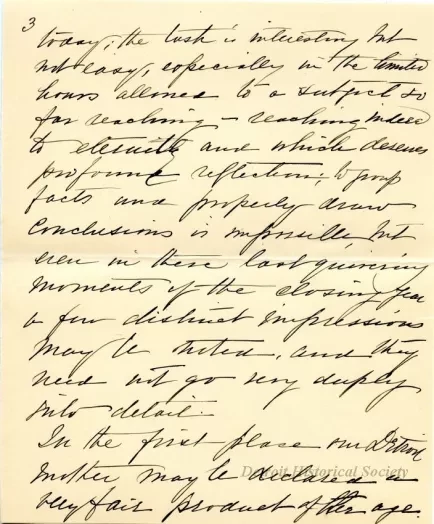 3
today; the task is interesting but
not easy, especially in the limited
hours allowed to a subject so
far reaching - reaching indeed
to eternity and which deserves
profound reflection; to group
facts and properly draw
conclusions is impossible, but
even in these last quivering
moments of the closing year
a few distinct impressions
may be noted, and they
need not go very deeply
into detail.
In the first place our Detroit
mother may be declared a
very fair product of the age.
Detroit Historical Society